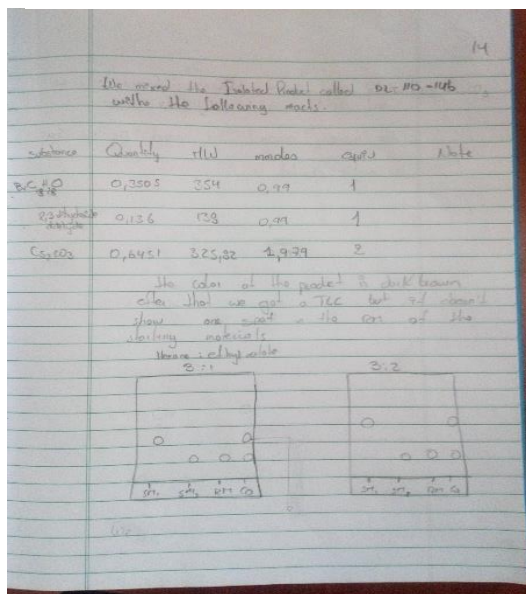 14
We mixed the Isolated Product called DL-110-146
withe the following reacts.
substance Quantity MW mmoles equiv Note
0,3505 354 0,99 1
0,136 138 0,99 1
Cs2CO3 0,6451 325,82 1,979 2
the color of the product is dark brown
after that we got a TLC but it doesn't
show one spot the of the
starting materials
Hexane : ethyl acetate
3:1 3:2
SM1 SM2 RM CO SM1 SM2 RM CO